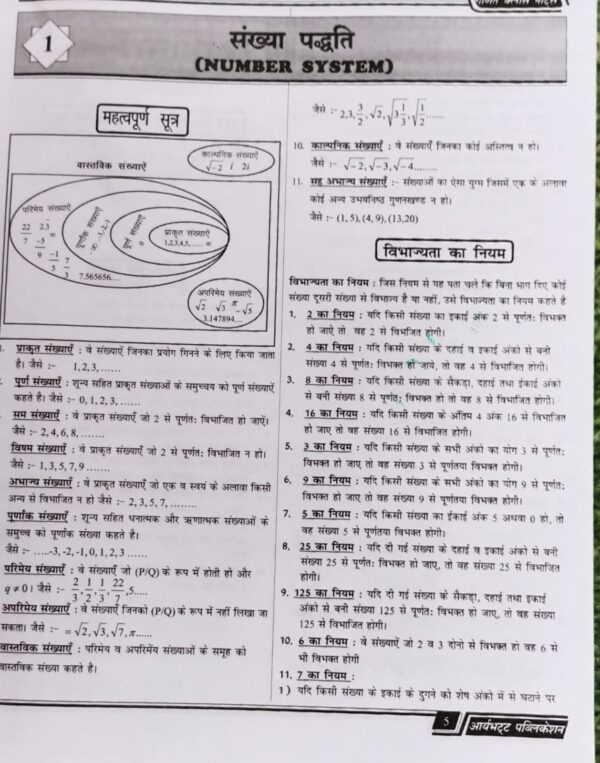 गणित क्लास नोट्स
1
संख्या पद्धति
(NUMBER SYSTEM)
महत्वपूर्ण सूत्र
वास्तविक संख्याऐं
काल्पनिक संख्याऐं
√-2 i 2i
परिमेय संख्याऐं
22/7 2.3
-5/9 ∞
-1/5 7/3
7.565656....
पूर्णांक संख्याऐं
- ∞ -1,-2,-1
पूर्ण संख्याऐं
0
प्राकृत संख्याऐं
1,2,3,4,5,...... ∞
अपरिमेय संख्याऐं
√2 √3 π -√5
3.147894....
प्राकृत संख्याऐं : वे संख्याऐं जिनका प्रयोग गिनने के लिए किया जाता
है। जैसे :- 1, 2, 3, ......
पूर्ण संख्याऐं : शून्य सहित प्राकृत संख्याओं के समुच्चय को पूर्ण संख्याऐं
कहते है। जैसे :- 0, 1, 2, 3, ......
सम संख्याऐं : वे प्राकृत संख्याऐं जो 2 से पूर्णत: विभाजित हो जाऐं।
जैसे :- 2, 4, 6, 8, .......
विषम संख्याऐं : वे प्राकृत संख्याऐं जो 2 से पूर्णत: विभाजित न हो।
जैसे :- 1, 3, 5, 7, 9 .......
अभाज्य संख्याऐं : वे प्राकृत संख्याऐं जो एक व स्वयं के अलावा किसी
अन्य से विभाजित न हो जैसे :- 2, 3, 5, 7, ........
पूर्णांक संख्याऐं : शून्य सहित धनात्मक और ऋणात्मक संख्याओं के
समुच्च को पूर्णांक संख्या कहते है।
जैसे :- .....-3, -2, -1, 0, 1, 2, 3 ......
परिमेय संख्याऐं : वे संख्याऐं जो (P/Q) के रूप में होती हो और
q ≠ 0। जैसे :- 2/3, 1/2, 1/3, 22/7, 5.....
अपरिमेय संख्याऐं : वे संख्याऐं जिनको (P/Q) के रूप में नहीं लिखा जा
सकता। जैसे :- = √2, √3, √7, π......
वास्तविक संख्याऐं : परिमेय व अपरिमेंय संख्याओं के समूह को
वास्तविक संख्या कहते है।
जैसे :- 2, 3, 3/2, √2, √3 1/3, √1/2 ......
10. काल्पनिक संख्याऐं : वे संख्याऐं जिनका कोई अस्तित्व न हो।
जैसे :- √-2, √-3, √-4........
11. सह अभाज्य संख्याऐं :- संख्याओं का ऐसा युग्म जिसमें एक के अलावा
कोई अन्य उभयनिष्ठ गुणनखण्ड न हो।
जैसे :- (1, 5), (4, 9), (13, 20)
विभाज्यता का नियम
विभाज्यता का नियम : जिस नियम से यह पता चले कि बिना भाग दिए कोई
संख्या दूसरी संख्या से विभाज्य है या नहीं, उसे विभाज्यता का नियम कहते है
1. 2 का नियम : यदि किसी संख्या का इकाई अंक 2 से पूर्णत: विभक्त
हो जाऐ तो वह 2 से विभजित होगी।
2. 4 का नियम : यदि किसी संख्या के दहाई व इकाई अंको से बनी
संख्या 4 से पूर्णत: विभक्त हो जाये, तो वह 4 से विभाजित होगी।
3. 8 का नियम : यदि किसी संख्या के सैकड़ा, दहाई तथा ईकाई अंको
से बनी संख्या 8 से पूर्णत: विभक्त हो तो वह 8 से विभाजित होगी।
4. 16 का नियम : यदि किसी संख्या के अंतिम 4 अंक 16 से विभाजित
हो जाए तो वह संख्या 16 से विभाजित होगी।
5. 3 का नियम : यदि किसी संख्या के सभी अंको का योग 3 से पूर्णत:
विभक्त हो जाए तो वह संख्या 3 से पूर्णतया विभक्त होगी।
6. 9 का नियम : यदि किसी संख्या के सभी अंको का योग 9 से पूर्णत:
विभक्त हो जाए तो वह संख्या 9 से पूर्णतया विभक्त होगी।
7. 5 का नियम : यदि किसी संख्या का ईकाई अंक 5 अथवा 0 हो, तो
वह संख्या 5 से पूर्णतया विभक्त होगी।
8. 25 का नियम : यदि दी गई संख्या के दहाई व इकाई अंको से बनी
संख्या 25 से पूर्णत: विभक्त हो जाए, तो वह संख्या 25 से विभाजित
होगी।
9. 125 का नियम : यदि दी गई संख्या के सैकड़ा, दहाई तथा इकाई
अंको से बनी संख्या 125 से पूर्णत: विभक्त हो जाए, तो वह संख्या
125 से विभाजित होगी।
10. 6 का नियम : वे संख्याऐं जो 2 व 3 दोनो से विभक्त हो वह 6 से
भी विभक्त होगी
11. 7 का नियम :
1) यदि किसी संख्या के इकाई के दुगने को शेष अंको में से घटाने पर
5
आर्यभट्ट पब्लिकेशन